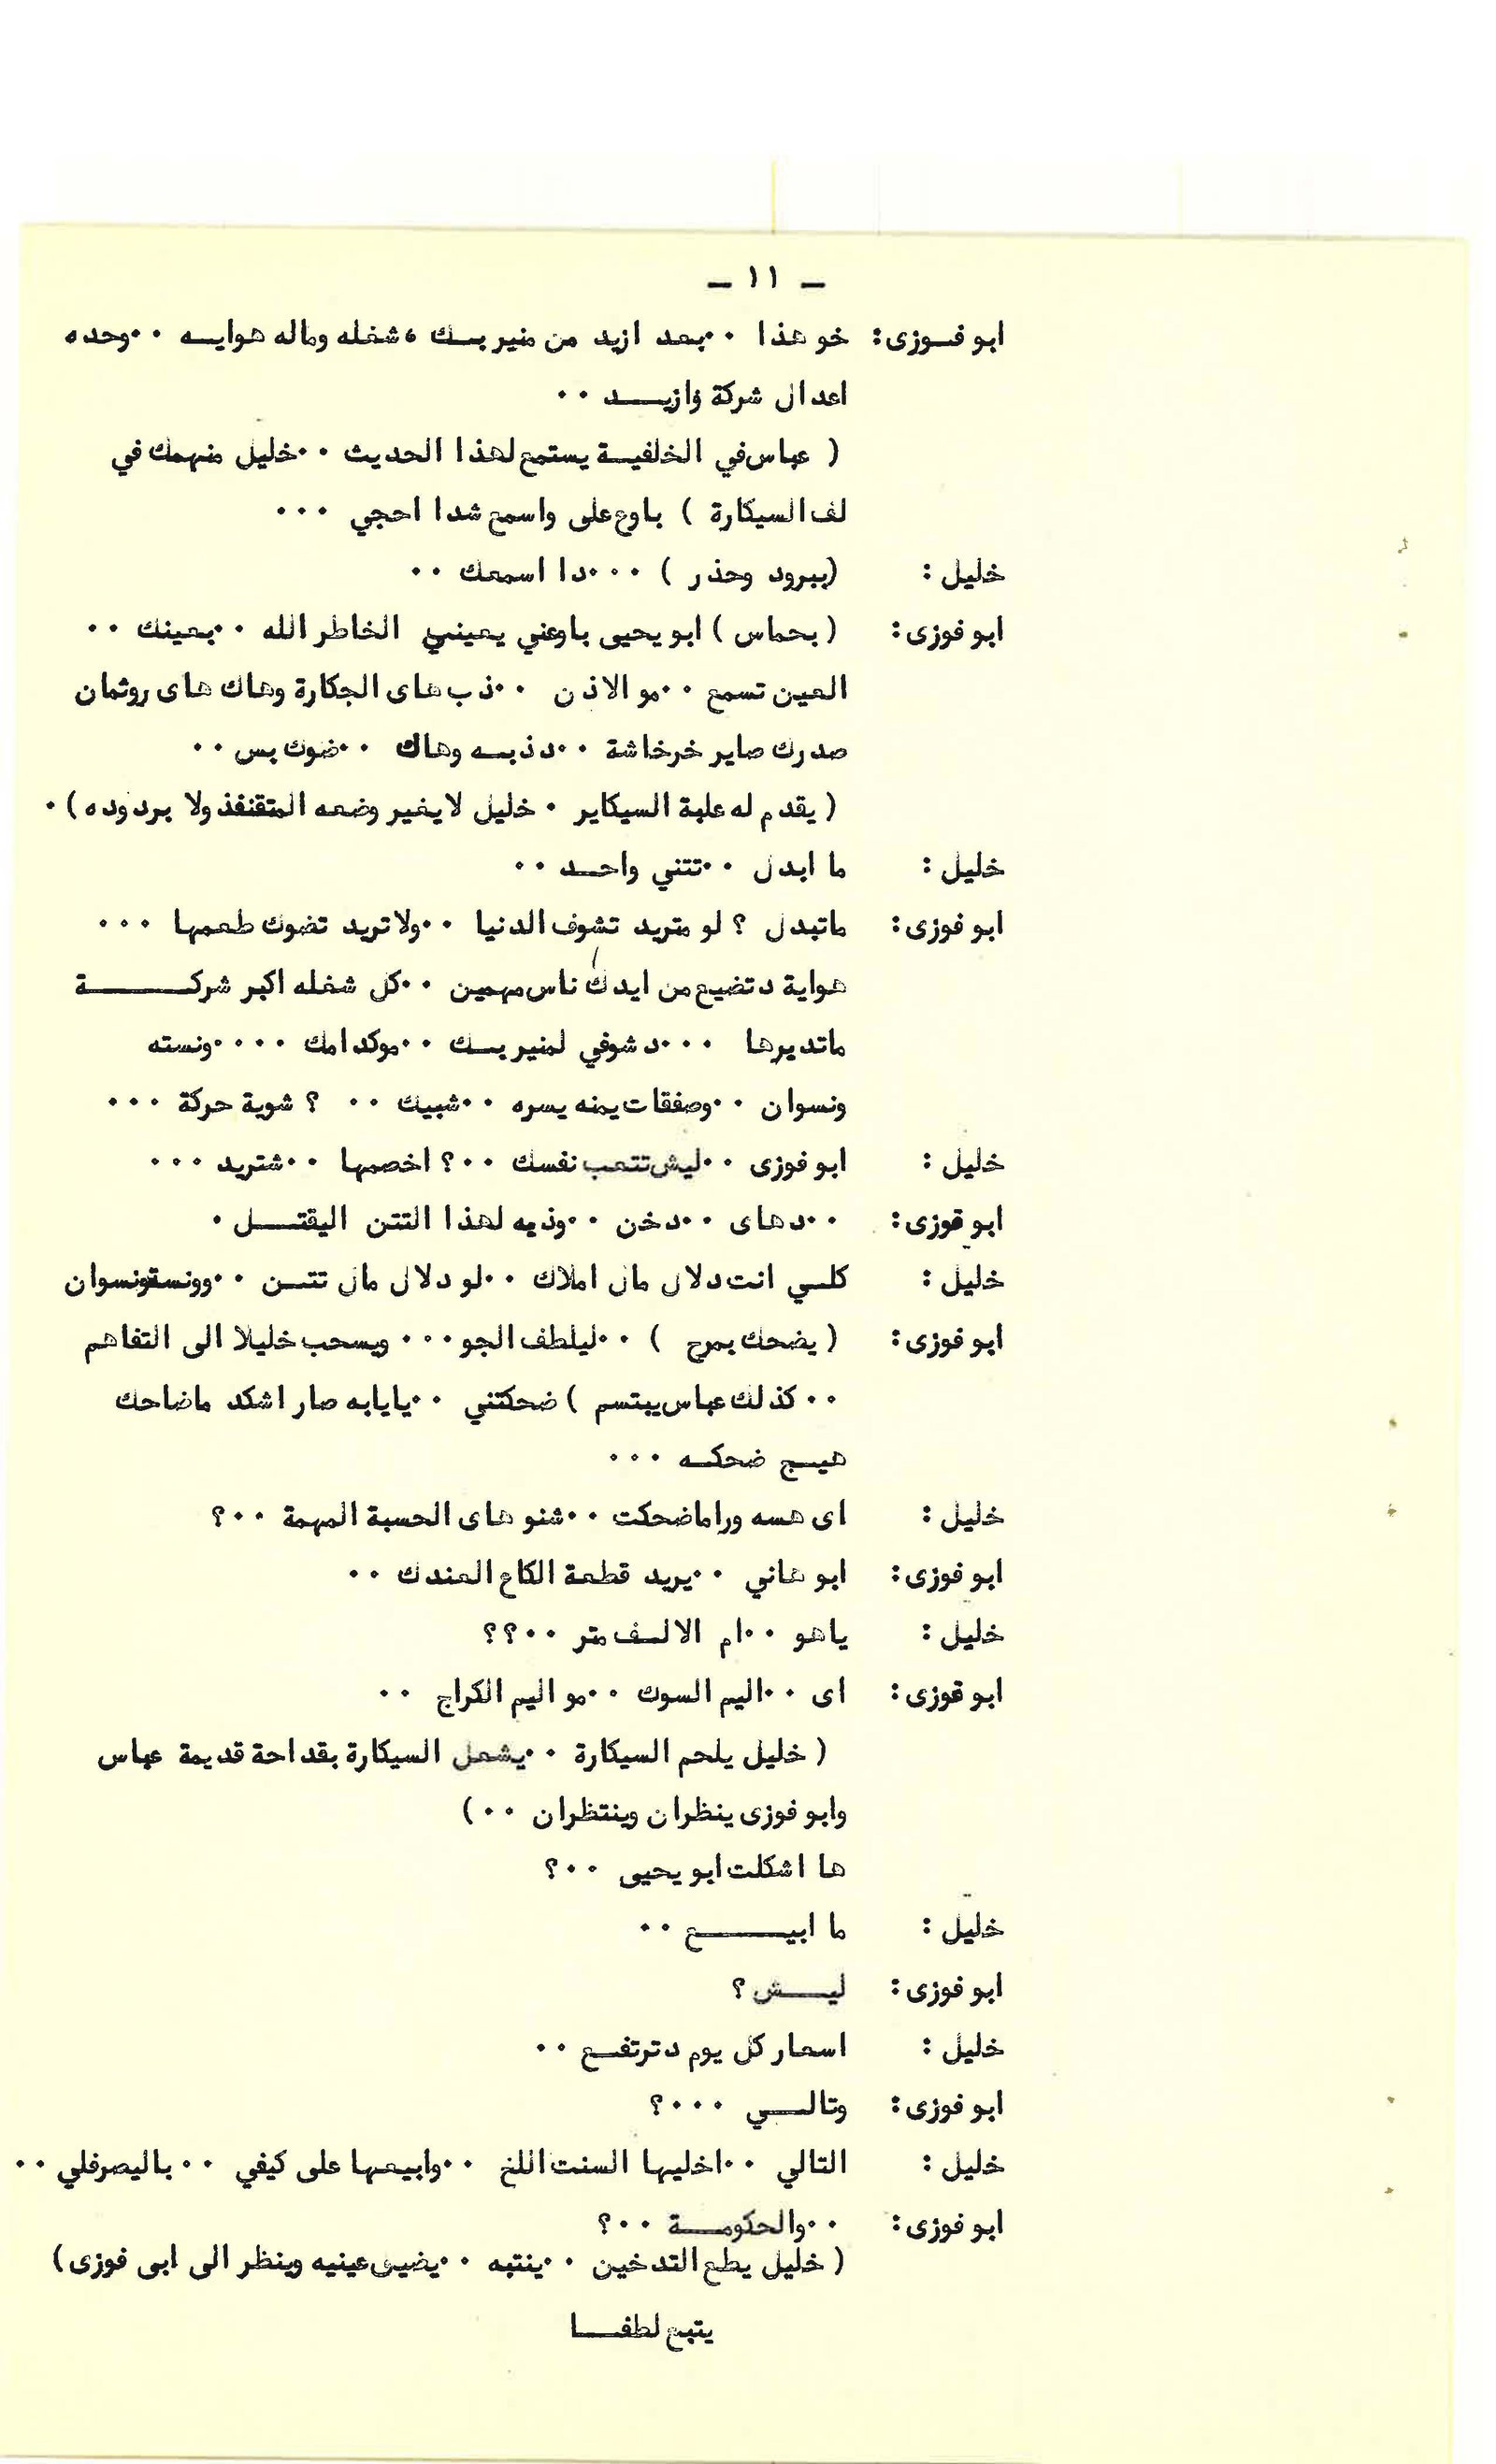 - ١١ -
ابو فوزى: خو هذا ٠٠بعد ازيد من منير بك ، شغله وماله هوايه ٠٠وحده
اعدال شركة وازيد ٠٠
( عباس في الخلفية يستمع لهذا الحديث ٠٠خليل منهمك في
لف السيكارة ) باوع على واسمع شدا احجي ٠٠٠
خليل : (ببرود وحذر ) ٠٠٠دا اسمعك ٠٠
ابو فوزى: ( بحماس ) ابو يحيى باوعني بعيني الخاطر الله ٠٠بعينك ٠٠
العين تسمع ٠٠مو الاذن ٠٠ذب هاى الجكارة وهاك هاى روثمان
صدرك صاير خرخاشة ٠٠دذبه وهاك ٠٠ضوك بس ٠٠
( يقدم له علبة السيكاير ٠ خليل لايغير وضعه المتقنفذ ولا بردوده ) ٠
خليل : ما ابدل ٠٠تتني واحد ٠٠
ابو فوزى: ماتبدل ؟ لو متريد تشوف الدنيا ٠٠ولاتريد تضوك طعمها ٠٠٠
هواية دتضيع من ايدك ناس مهمين ٠٠كل شغله اكبر شركة
ماتديرها ٠٠٠دشوفي لمنير بك ٠٠موكدامك ٠٠٠٠ونسته
ونسوان ٠٠وصفقات يمنه يسره ٠٠شبيك ٠٠ ؟ شوية حركة ٠٠٠
خليل : ابو فوزى ٠٠ليش تتعب نفسك ٠٠؟ اخصمها ٠٠شتريد ٠٠٠
ابو قوزى: ٠٠دهاى ٠٠دخن ٠٠وذبه لهذا التتن اليقتل ٠
خليل : كلي انت دلال مال املاك ٠٠لو دلال مال تتن ٠٠وونستونسوان
ابو فوزى: ( يضحك بمرح ) ٠٠ليلطف الجو ٠٠٠ ويسحب خليلا الى التفاهم
٠٠ كذلك عباس يبتسم ) ضحكتني ٠٠يايابه صار اشكد ماضاحك
هيج ضحكه ٠٠٠
خليل : اى هسه وراماضحكت ٠٠شنو هاى الحسبة المهمة ٠٠؟
ابو فوزى: ابو هاني ٠٠يريد قطعة الكاع العندك ٠٠
خليل : ياهو ٠٠ام الالف متر ٠٠؟؟
ابو قوزى: اى ٠٠اليم السوك ٠٠مو اليم الكراج ٠٠
( خليل يلحم السيكارة ٠٠يشعل السيكارة بقداحة قديمة عباس
وابو فوزى ينظران وينتظران ٠٠)
ها اشكلت ابو يحيى ٠٠؟
خليل : ما ابيع ٠٠
ابو فوزى: ليش ؟
خليل : اسعار كل يوم دترتفع ٠٠
ابو فوزى: وتالي ٠٠٠؟
خليل : التالي ٠٠اخليها السنت اللخ ٠٠وابيعها على كيفي ٠٠ باليصرفلي ٠٠
ابو فوزى: ٠٠والحكومة ٠٠؟
( خليل يطع التدخين ٠٠ينتبه ٠٠يضيى عينيه وينظر الى ابى فوزى)
يتبع لطفا